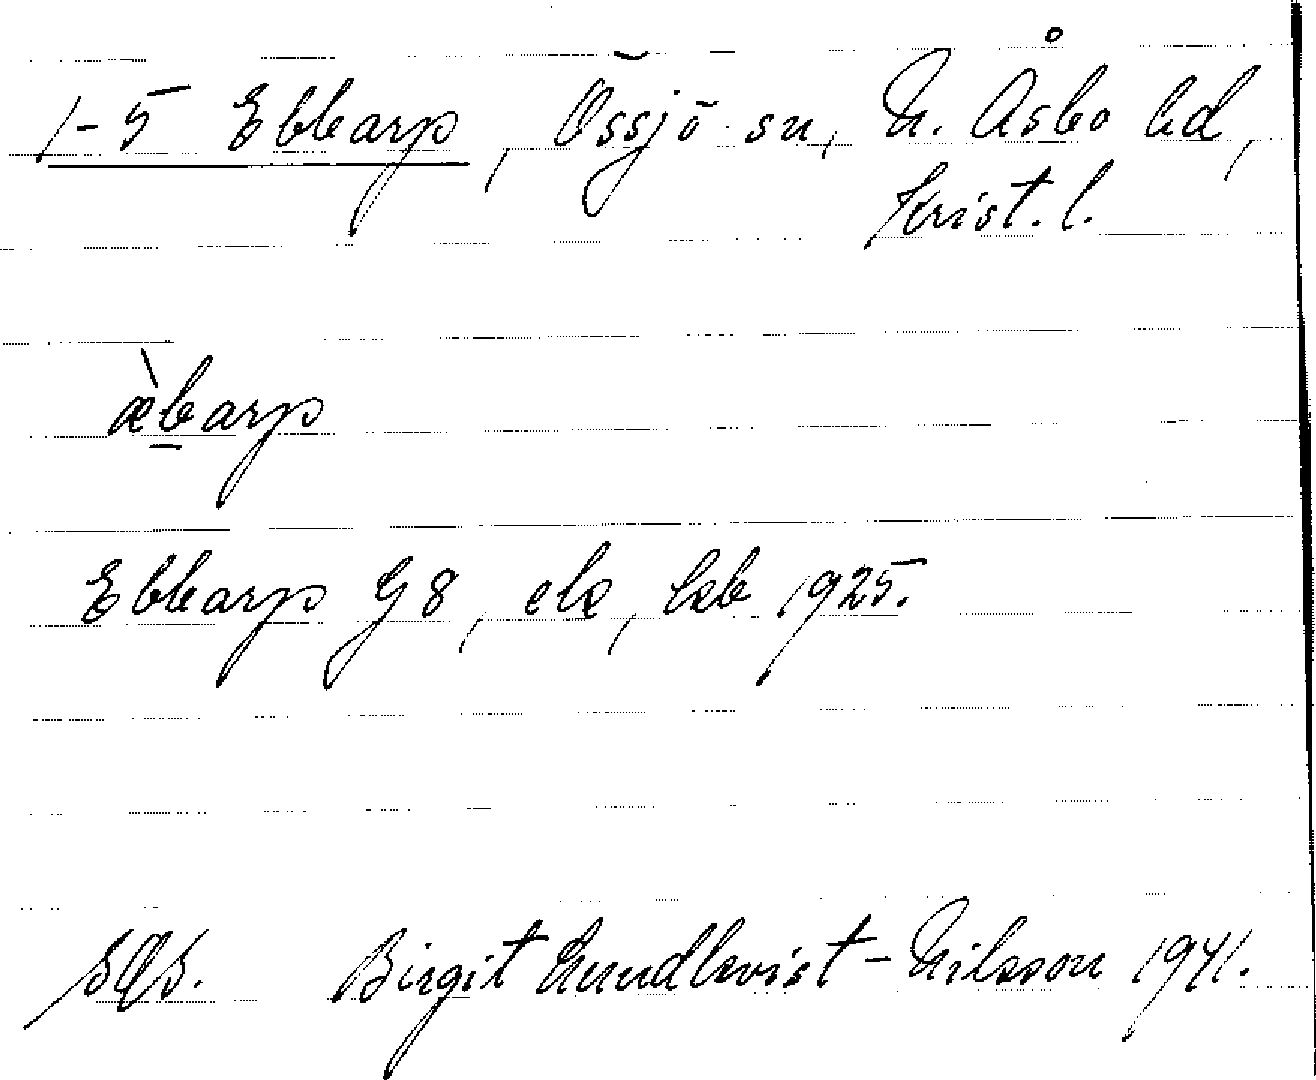 1-5 Ebbarp, Össjö sn, N. Åsbo hd,
Krist. l.
æ̀b̲arp
Ebbarp G 8, ek, 1925.
Birgit Lundkvist-Nilsson 1941.